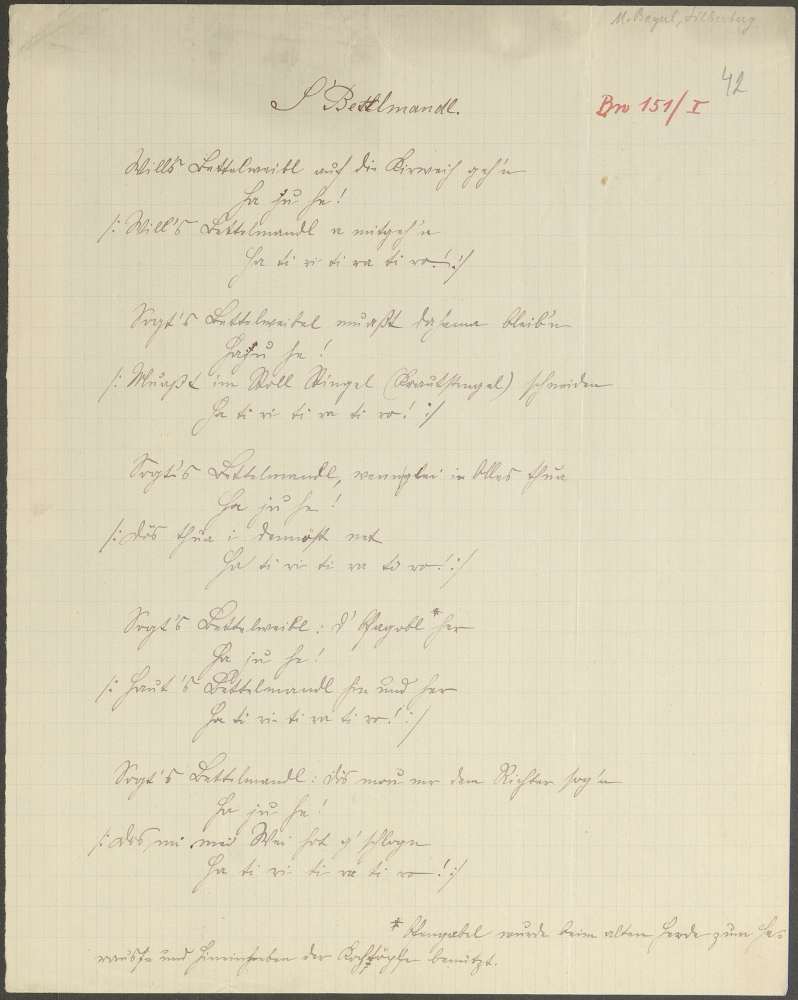 M. Beyerl, Silberberg
42
S' Bettlmandl.
Bro 151/I
Will's Bettelweibl auf die Kirweih geh'n
Ha ju he!
/: Will's Bettelmandl a mitgeh'n
Ha ti ri ti ra ti ro! :/
Sogt's Bettelweibel muaßt dahoma bleib'n
Ha ju he!
/: Muaßt im Stoll Stingel (Krautstengel) schneiden
Ha ti ri ti ra ti ro! :/
Sogt's Bettelmandl, wenngleich Alles thua
Ha ju he!
/: Dös thua i dennöst net
Ha ti ri ti ra to ro! :/
Sogt's Bettelweibl: d' Ofagobl * her
Ha ju he!
/: Haut 's Bettelmandl hin und her
Ha ti ri ti ra ti ro! :/
Sogt's Bettelmandl: Dös mou mr dem Richter sog'n
Ha ju he!
/: Dos mi mei Wei hot g'schlogn
Ha ti ri ti ra ti ro! :/
* Ofengabel wurde beim alten Herde zum He-
rausfe und Hineinheben der Kochtöpfe benützt.